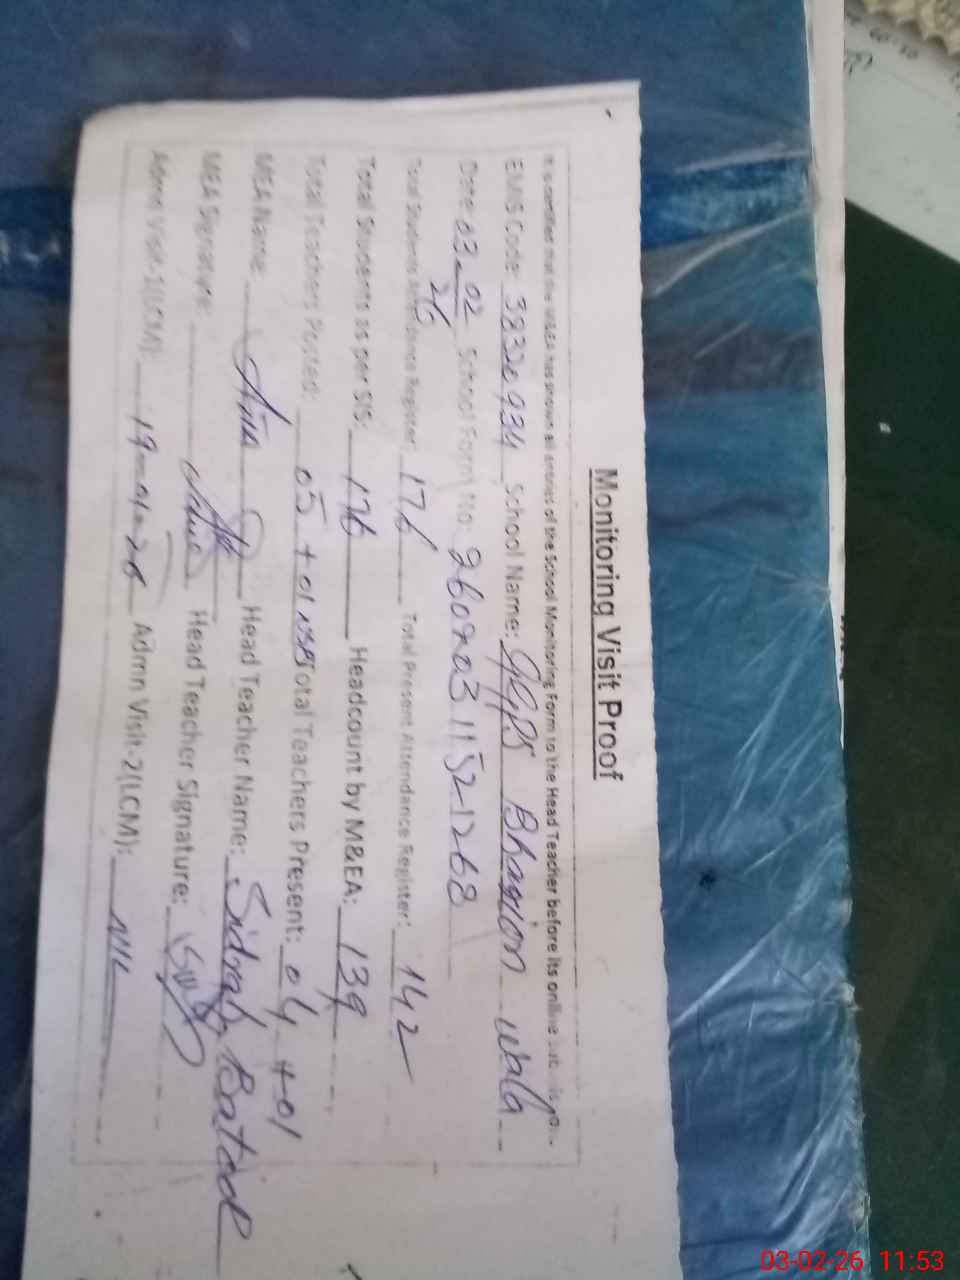 Monitoring Visit Proof
It is certified that the M&EA has shown all entries of the School Monitoring Form to the Head Teacher before its online
EMIS Code: School Name: GGPS wala
Date: 03 02 26 School Form No:
Total Students Attendance Register: 176 Total Present Attendance Register: 142
Total Students as per SIS: 176 Headcount by M&EA: 139
Total Teachers Posted: 05 + 01 Total Teachers Present: 04 +01
MEA Name: Head Teacher Name: Sidrah Batool
MEA Signature: Head Teacher Signature:
Admn Visit-1(LCM): 19-01-26 Admn Visit-2(LCM): NIL
03-02-26 11:53